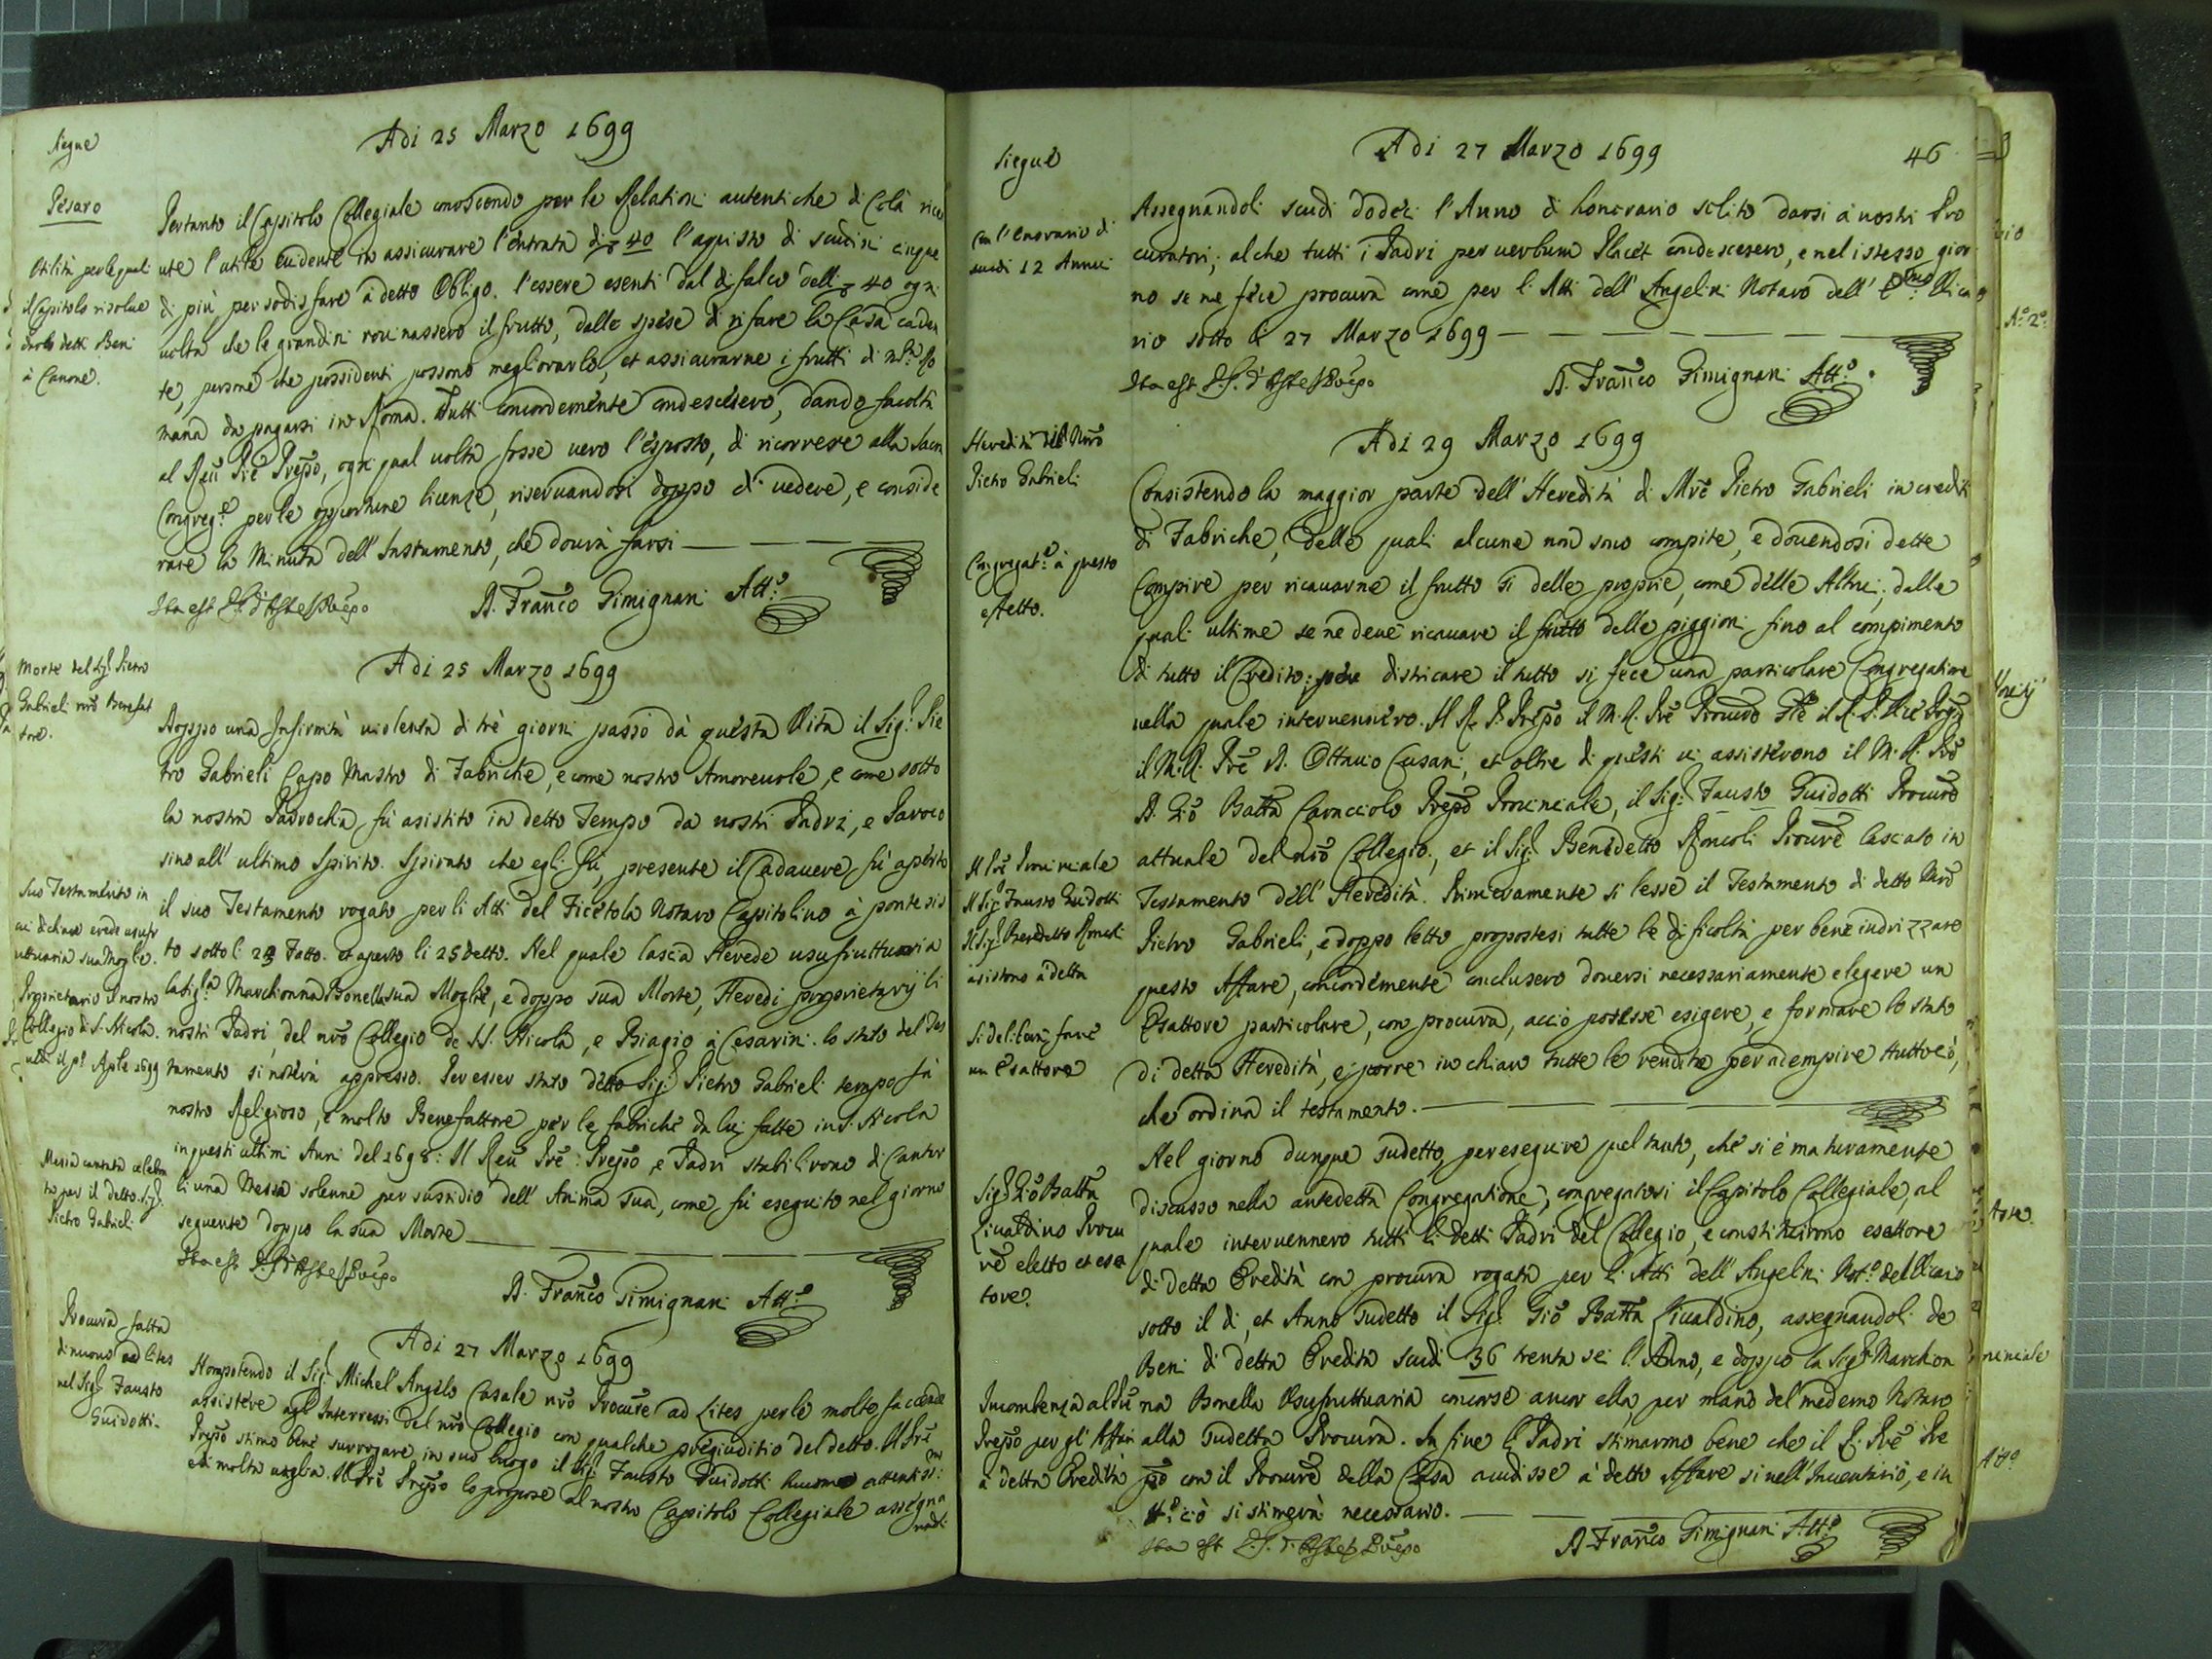 siegue
Adi 25 Marzo 1699
Pesaro
Utilità per le quali
il Capitolo risolue
darli detti Beni
à Canone.
Pertanto il Capitolo Collegiale conoscendo per le Relationi autentiche di Colà riceu
ute l'utile euidente in assicurare l'entrata di 40 l'aquisto di scudi cinque
di più per sodisfare à detto Obligo. l'essere esenti dal difalco delli 40 ogni
uolta che le grandini rouinassero il frutto, dalle spese di rifare la Casa caden
te, persone che possidenti possono megliorarlo, et assicurarne i frutti di Ro
mana da pagarsi in Roma. Tutti concordemente condescesero, dando facoltà
al Reu Prē Prepo, ogni qual uolta fosse uero l'esposto, di ricorrere alla Sacra
Congreg.e per le opportune licenze, riseruandosi doppo di uedere, e conside
rare la Minuta dell'Instrumento, che dourà farsi
Ita est
D. Franco Gimignani Att.o
Adi 25 Marzo 1699
Morte del Sig.r Pietro
Gabrieli nrō Benefat
tore.
Doppo una Infirmità uiolenta di trè giorni passò dà questa Vita il Sig.r Pie
tro Gabrieli Capo Mastro di Fabriche, e come nostro Amoreuole, e come sotto
la nostra Parochia, fù asistito in detto Tempo da nostri Padri, e Paroco
sino all'ultimo Spirito. Spirato che egli fù, presente il Cadauere, fù aperto
il suo Testamento rogato per li Atti del Ficetola Notaro Capitolino à ponte sis
to sotto li 23 Fatto. et aperto li 25 detto. Nel quale lascia Herede usufruttuaria
la Sig.ra Marchionna Bonella sua Moglie, e doppo sua Morte, Heredi proprietarij li
nostri Padri del nrō Collegio de SS. Nicola, e Biagio à Cesarini. lo stato del Tes
tamento si noterà appresso. Per esser stato detto Sig.r Pietro Gabrieli tempo fà
nostro Religioso, e molto Benefattore per le fabriche da lui fatte in S. Nicola
in questi ultimi Anni del 1698: Il Reu Prē: Prepo e Padri stabilirono di Cantar
li una Messa solenne per sussidio dell'Anima sua, come fù eseguito nel giorno
seguente doppo la sua Morte
Suo Testamento in
cui dichiara erede usufr
uttuaria sua Moglie.
Proprietario il nostro
Collegio di S. Nicola.
uedi il p.o Aprile 1699
Messa cantata celebra
ta per il detto Sig.r
Pietro Gabrieli
Ita est
D. Franco Gimignani Att.o
Adi 27 Marzo 1699
Procura fatta
di nuouo ad lites
nel Sig.r Fausto
Guidotti.
Non potendo il Sig.r Michel'Angelo Casale nrō Procure ad Lites per le molte facende
assistere agl'Interressi del nrō Collegio con qualche pregiuditio del detto. Il Prē
Prepo stimò bene surrogare in suo luogo il Sig.r Fausto Guidotti huomo attentiss:mo
e di molta uaglia. Il Prē Prepo lo propose al nostro Capitolo Collegiale assegna
ndoli
siegue
Adi 27 Marzo 1699
46
Con l'Onorario di
scudi 12 Annui
Assegnandoli scudi dodeci l'Anno di honorario solito darsi a nostri Pro
curatori; al che tutti i Padri per uerbum Placet condescesero, e nel istesso gior
no se ne fece procura come per li Atti dell'Angelini Notaro dell' Vica
rio sotto li 27 Marzo 1699
Ita est
D. Franco Gimignani Att.o
Adi 29 Marzo 1699
Heredità del Mrō
Pietro Gabrieli
Congregat.e à questo
effetto.
Consistendo la maggior parte dell'Heredità di Mrō Pietro Gabrieli in crediti
di Fabriche, delle quali alcune non sono compite, e douendosi dette
Compire per ricauarne il frutto si delle proprie, come delle Altrui; dalle
quali ultime se ne deue ricauare il frutto delle piggioni fino al compimento
di tutto il Credito; per districare il tutto si fece una particolare Congregatione
nella quale interuennero. Il R. P. Prepo il M. R. Prē
il M. R. Prē D. Ottauio Cusani, et oltre di questi ui assisterono il M. R. Prē
D. Giō Batta Caracciolo Prepo Prouinciale, il Sig.r Fausto Guidotti Procurē
attuale del nrō Collegio, et il Sig.r Benedetto Roncoli Procurē lasciato in
Testamento dell'Heredità. Primieramente si lesse il Testamento di detto Mrō
Pietro Gabrieli, e doppo letto propostesi tutte le dificoltà per bene indrizzare
questo Affare, concordemente conclusero douersi necessariamente elegere un
Esattore particolare, con procura, acciò potesse esigere, e formare lo stato
di detta Heredità, e porre in chiaro tutte le rendite per adempire tuttociò,
che ordina il testamento.
Il Prē Prouinciale
Il Sig.r Fausto Guidotti
Il Sig.r Benedetto Roncoli
asistono à detta
Si deliberò fare
un Esattore
Sig.r Giō Batta
Liualdino Procu
rē eletto et esat
tore.
Nel giorno dunque sudetto, per eseguire quel tanto, che si è maturamente
discusso nella antedetta Congregatione, congregatosi il Capitolo Collegiale, al
quale interuennero tutti li detti Padri del Collegio, e constituirono esattore
di detta Eredità con procura rogata per li Atti dell'Angelini Not.o del Vicario
sotto il di, et Anno sudetto il Sig.r Giō Batta Liualdino, assegnandoli de
Beni di detta Eredità scudi 36 trenta sei l'Anno, e doppo la Sig.ra Marchion
na Bonella Usufruttuaria concorse ancor ella per mano del medemo Notaro
alla sudetta Procura. In fine li Padri stimarono bene che il R. Prē Pre
po con il Procurē della Casa accudisse à detto Affare si nell'Inuentario, e in
tt.o ciò si stimerà necessario.
Incombenza al Pre
Prepo per gl'Affari
à detta Eredità
Ita est
D. Franco Gimignani Att.o